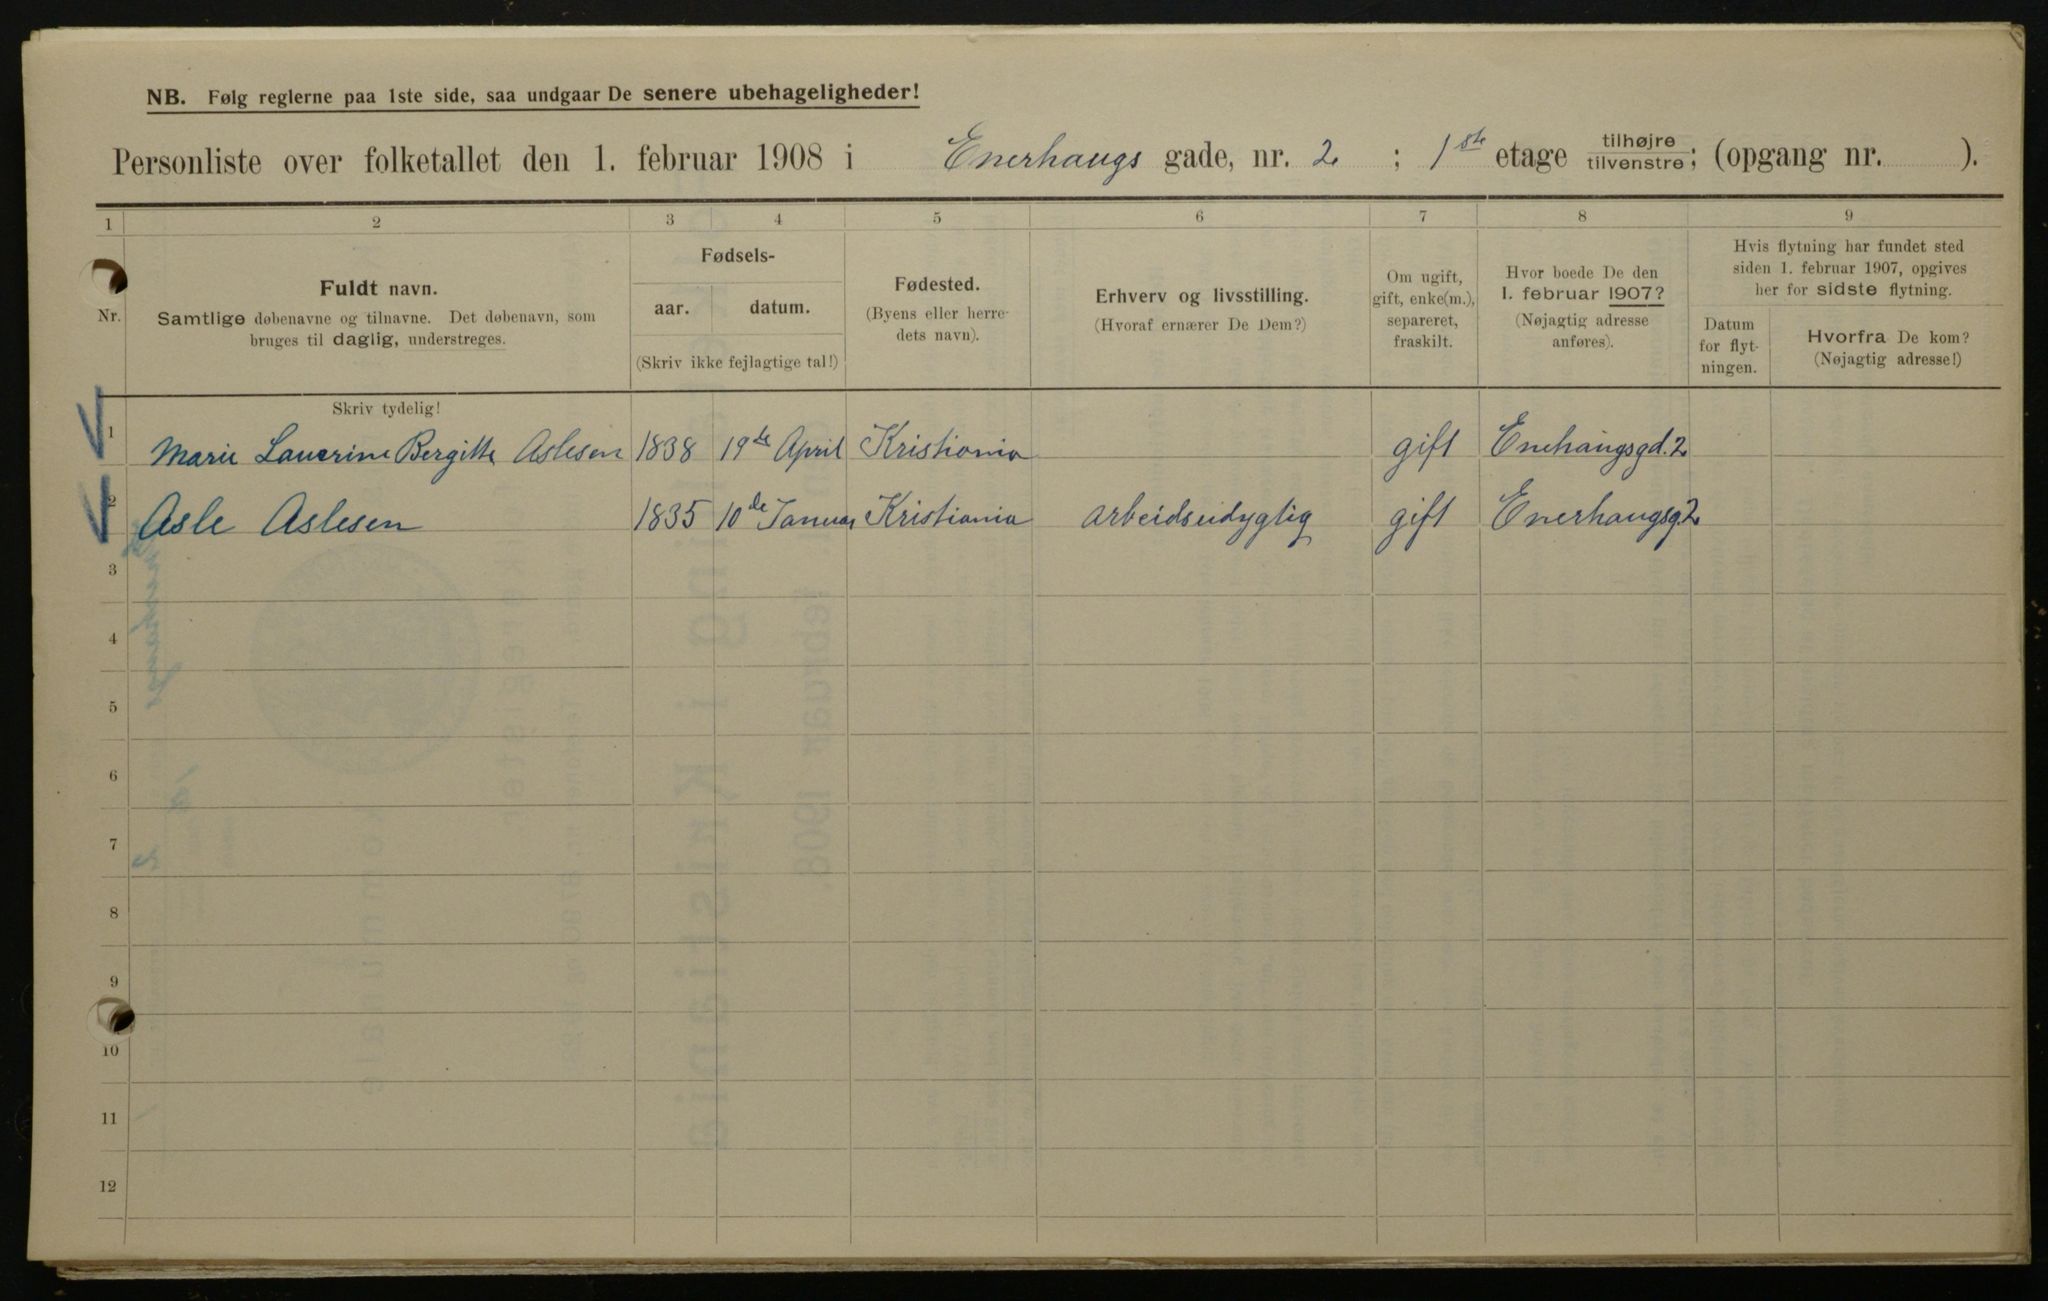 NB. Følg reglerne paa 1ste side, saa undgaar De senere ubehageligheder!
Personliste over folketallet den 1. februar 1908 i Enerhaugs gade, nr. 2 ; 1ste etage tilhøjre tilvenstre; (opgang nr. ).
1 2 3 4 5 6 7 8 9
Nr.
Fuldt navn.
Samtlige døbenavne og tilnavne. Det døbenavn, som
bruges til daglig, understreges.
Fødsels-
aar. datum.
(Skriv ikke fejlagtige tal!)
Fødested.
(Byens eller herre-
dets navn).
Erhverv og livsstilling.
(Hvoraf ernærer De Dem?)
Om ugift,
gift, enke(m.),
separeret,
fraskilt.
Hvor boede De den
1. februar 1907?
(Nøjagtig adresse
anføres).
Hvis flytning har fundet sted
siden 1. februar 1907, opgives
her for sidste flytning.
Datum
for flyt-
ningen.
Hvorfra De kom?
(Nøjagtig adresse!)
Skriv tydelig!
1 Marie Laurine Bergitte Aslesen 1838 19de April Kristiania gift Enehaugsgd. 2
2 Asle Aslesen 1835 10de Januar Kristiania arbeidsudyglig gift Enerhaugsg 2
3
4
5
6
7
8
9
10
11
12